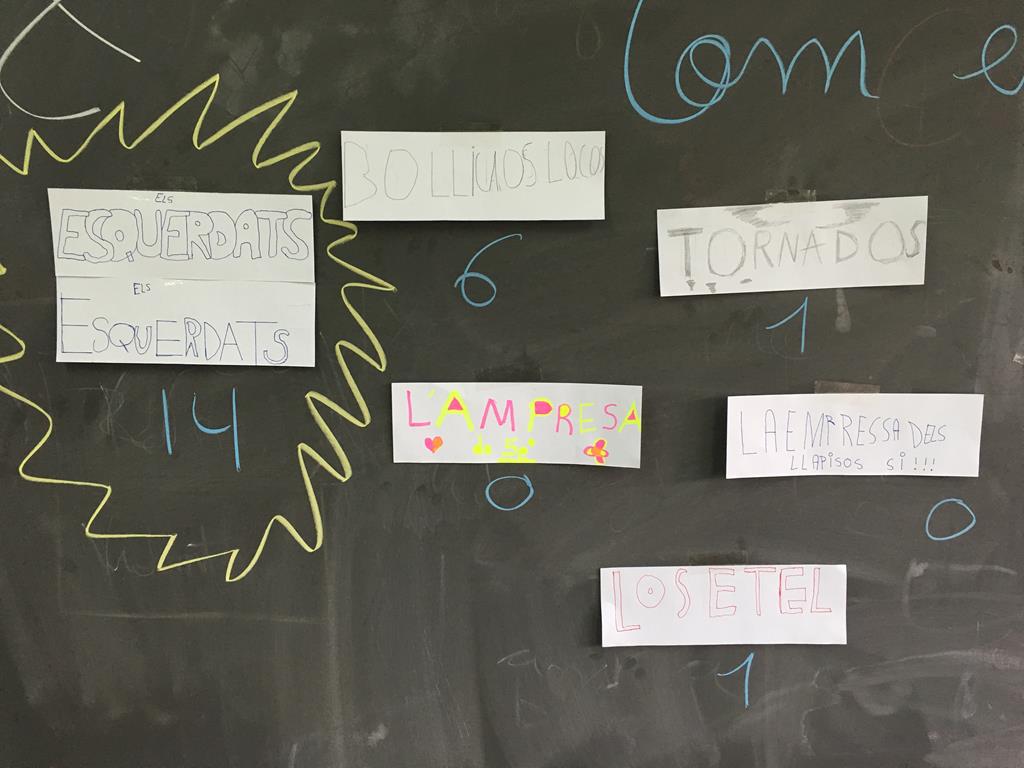 Com e
ELS
ESQUERDATS
ELS
ESQUERDATS
14
BOLLICAOS LOCOS
6
TORNADOS
1
L'AMPRESA
de 5è
0
LA EMPRESSA DELS
LLAPISOS SI!!!
0
LOS ETEL
1